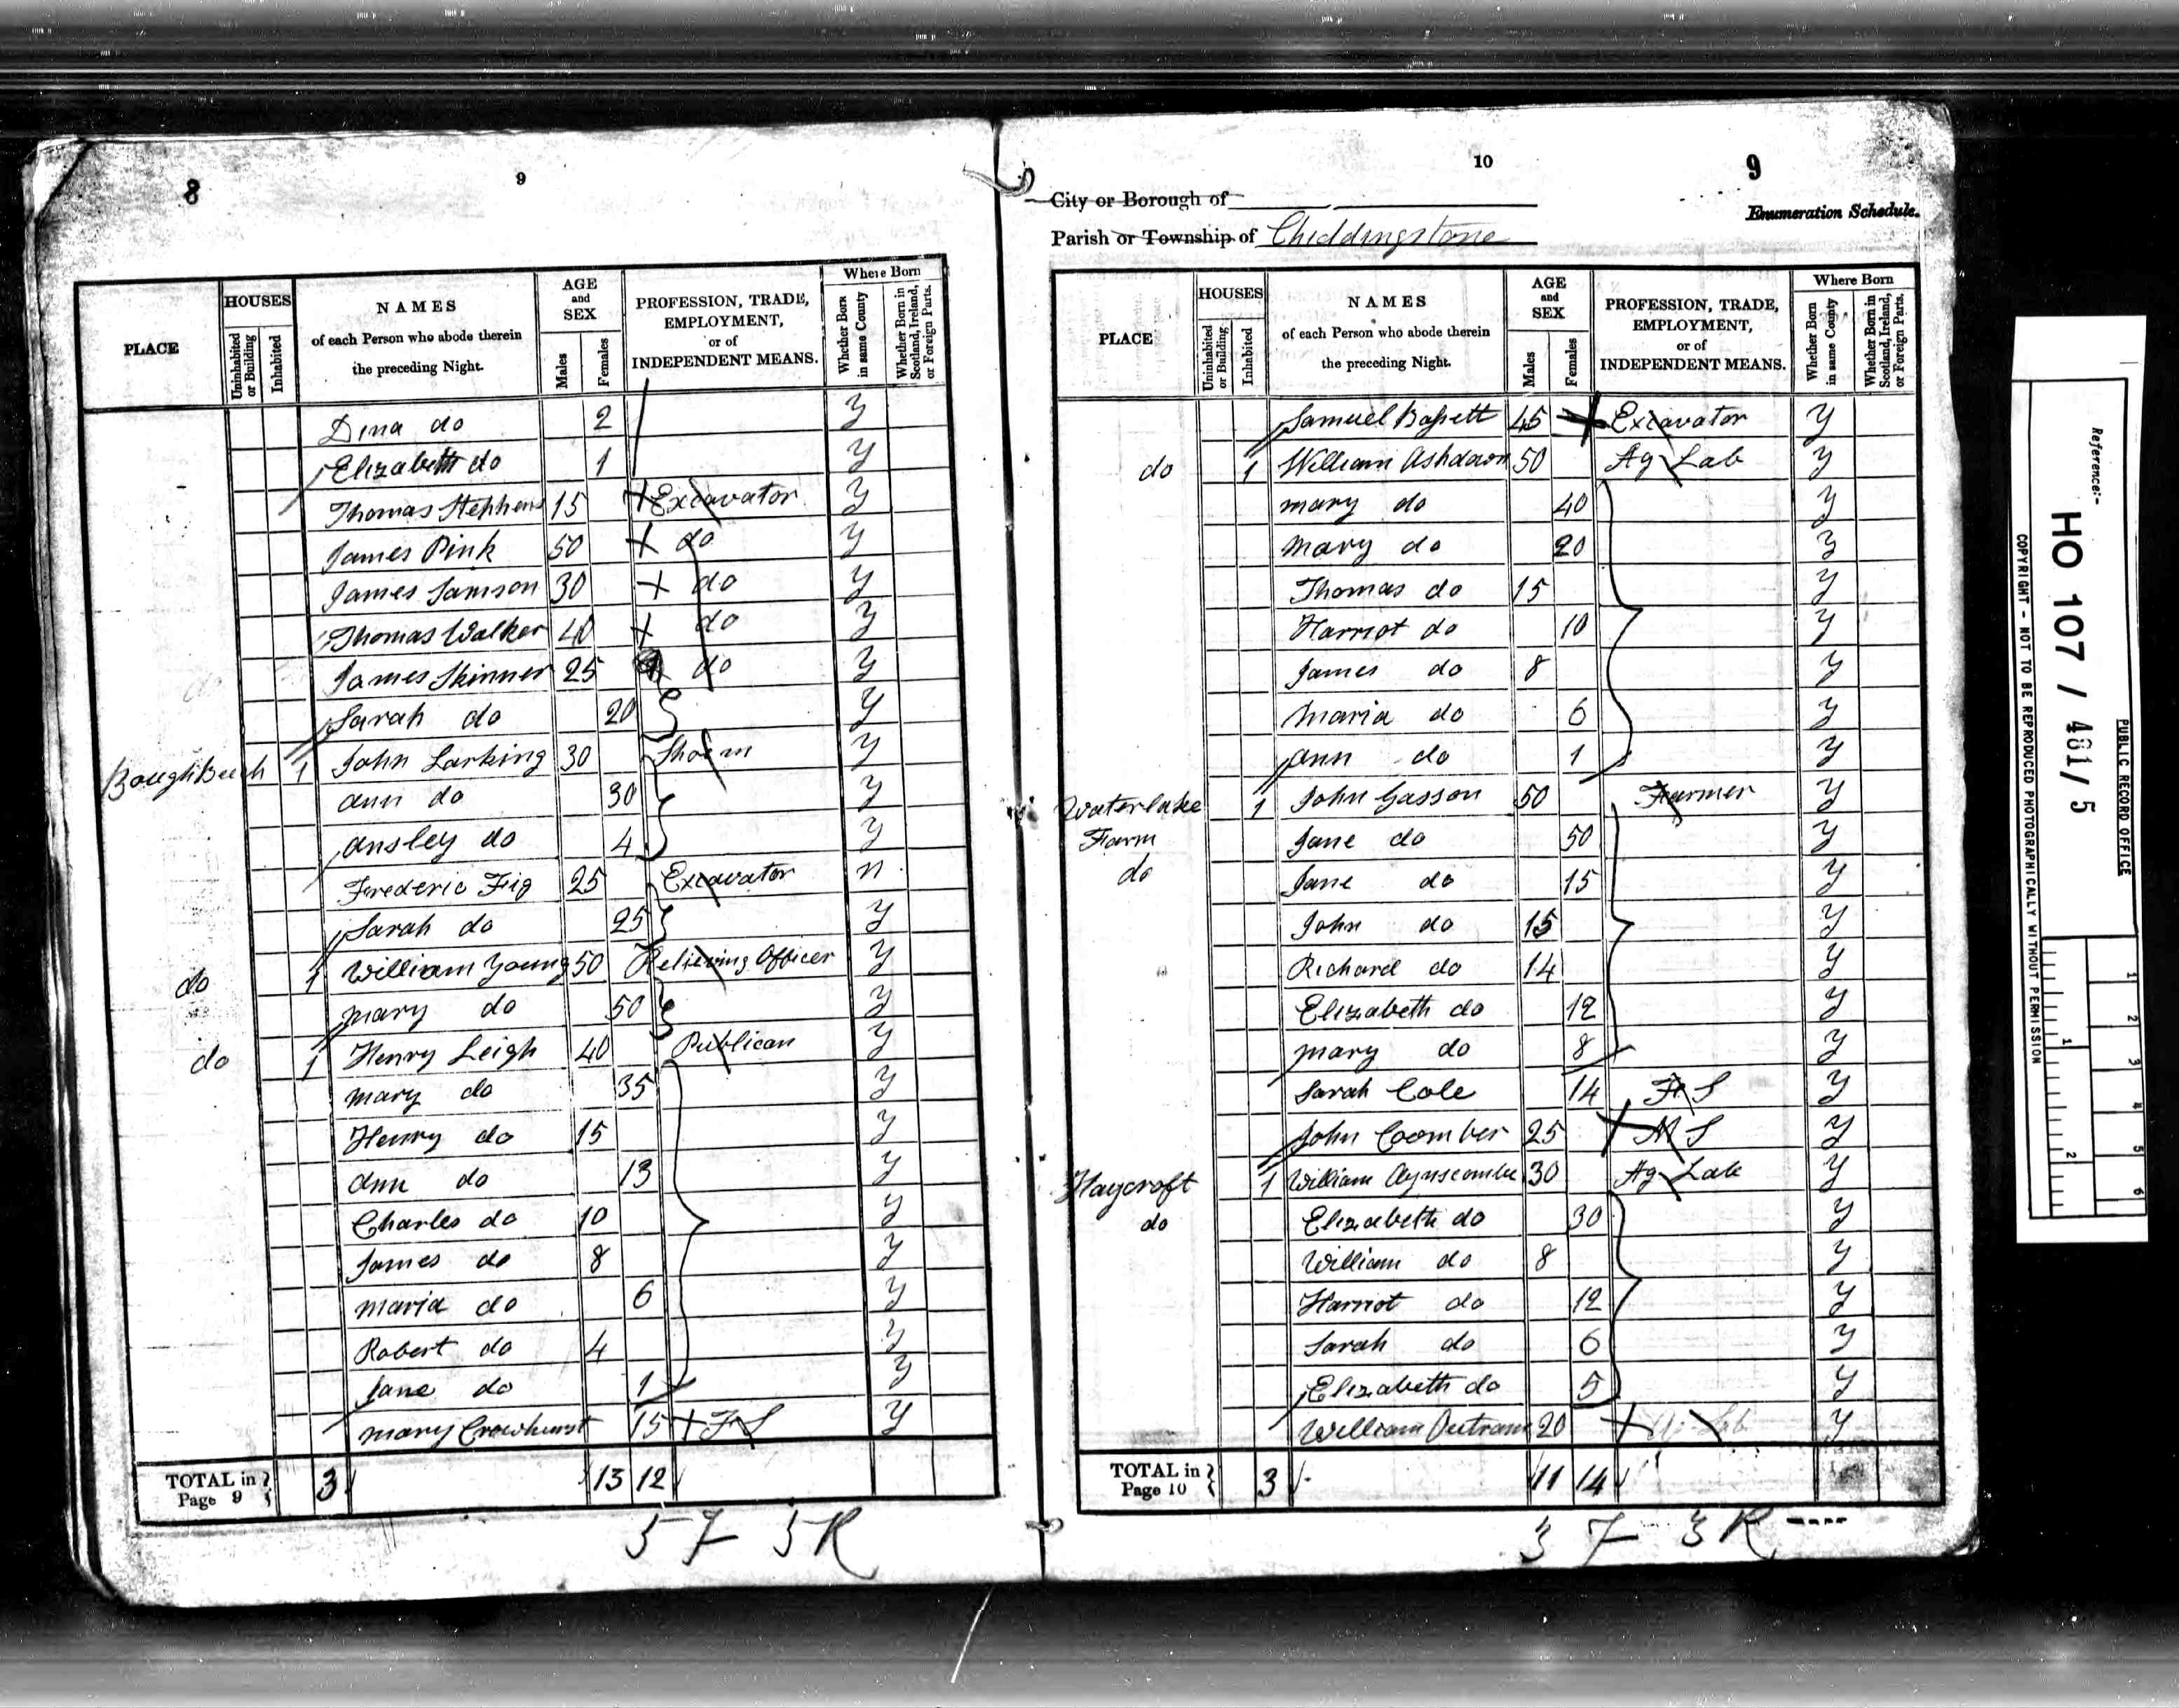 8
9
PLACE
HOUSES
Uninhabited or Building
Inhabited
NAMES
of each Person who abode therein
the preceding Night.
AGE
and
SEX
Males
Females
PROFESSION, TRADE,
EMPLOYMENT,
or of
INDEPENDENT MEANS.
Where Born
Whether Born in same County
Whether Born in Scotland, Ireland, or Foreign Parts.
Dina do 2 y
Elizabeth do 1 y
Thomas Stephens 15 Excavator y
James Pink 50 do y
James Samson 30 do y
Thomas Walker 40 do y
James Skinner 25 do y
Sarah do 20 y
Bough Beech 1 John Larking 30 Shoem y
Ann do 30 y
Ansley do 4 y
Frederic Fig 25 Excavator n
Sarah do 25 y
do 1 William Young 50 Relieving Officer y
Mary do 50 y
do 1 Henry Leigh 40 Publican y
Mary do 35 y
Henry do 15 y
Ann do 13 y
Charles do 10 y
James do 8 y
Maria do 6 y
Robert do 4 y
Jane do 1 y
Mary Crowhurst 15 F S y
TOTAL in Page 9 3 13 12
5 F 5 R
10
9
City or Borough of
Enumeration Schedule.
Parish or Township of Chiddingstone
PLACE
HOUSES
Uninhabited or Building
Inhabited
NAMES
of each Person who abode therein
the preceding Night.
AGE
and
SEX
Males
Females
PROFESSION, TRADE,
EMPLOYMENT,
or of
INDEPENDENT MEANS.
Where Born
Whether Born in same County
Whether Born in Scotland, Ireland, or Foreign Parts.
Samuel Bassett 45 Excavator y
do 1 William Ashdown 50 Ag Lab y
Mary do 40 y
Mary do 20 y
Thomas do 15 y
Harriot do 10 y
James do 8 y
Maria do 6 y
Ann do 1 y
Waterlake 1 John Gasson 50 Farmer y
Farm Jane do 50 y
do Jane do 15 y
John do 15 y
Richard do 14 y
Elizabeth do 12 y
Mary do 8 y
Sarah Cole 14 F S y
John Coomber 25 M S y
Haycroft 1 William Aynscombe 30 Ag Lab y
do Elizabeth do 30 y
William do 8 y
Harriot do 12 y
Sarah do 6 y
Elizabeth do 5 y
William Outram 20 Ag Lab y
TOTAL in Page 10 3 11 14
3 F 3 R
PUBLIC RECORD OFFICE
Reference:-
HO 107 / 481/5
COPYRIGHT - NOT TO BE REPRODUCED PHOTOGRAPHICALLY WITHOUT PERMISSION
1 2 3 4 5 6
1 2